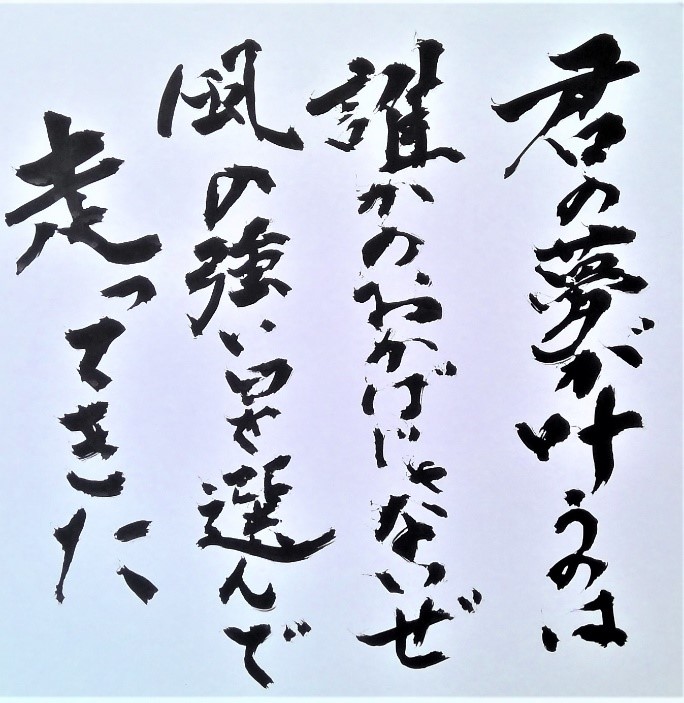 君の夢が叶うのは
誰かのおかげじゃないぜ
風の強い日を選んで
走ってきた